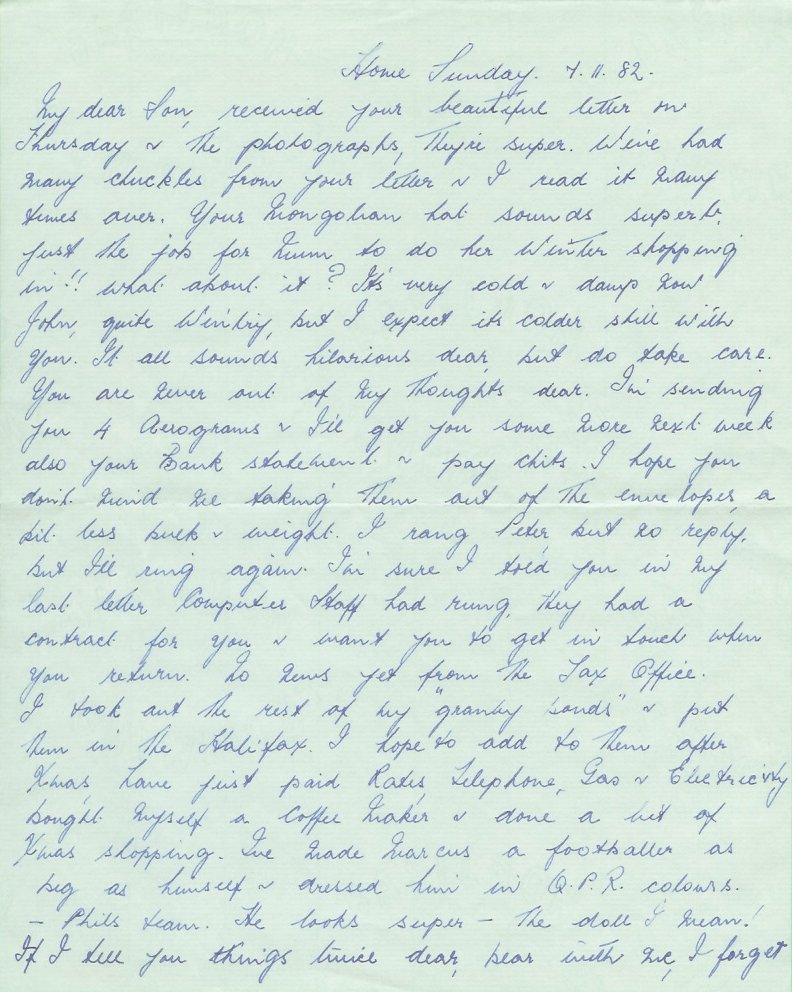 Home Sunday. 7.11.82.
My dear Son, received your beautiful letter on
Thursday & the photographs, They're super. We've had
many chuckles from your letter & I read it many
times over. Your Mongolian hat sounds superb,
just the job for Mum to do her Winter shopping
in!! what about it? It's very cold & damp now
John, quite Wintry, but I expect its colder still with
you. It all sounds hilarious dear, but do take care.
You are never out of my thoughts dear. I'm sending
you 4 Aerograms & I'll get you some more next week
also your Bank statement & pay chits. I hope you
don't mind me taking them out of the envelopes, a
bit less bulk & weight. I rang Peter, but no reply,
but I'll ring again. I'm sure I told you in my
last letter Computer Staff had rung, they had a
contract for you & want you to get in touch when
you return. No news yet from the Tax Office.
I took out the rest of my "granny bonds" & put
them in the Halifax. I hope to add to them after
Xmas, have just paid Rates, Telephone, Gas & Electricity
bought myself a Coffee Maker & done a bit of
Xmas shopping. I've made Marcus a footballer as
big as himself & dressed him in Q.P.R. colours.
- Phils team. He looks super - the doll I mean!
If I tell you things twice dear, bear with me, I forget